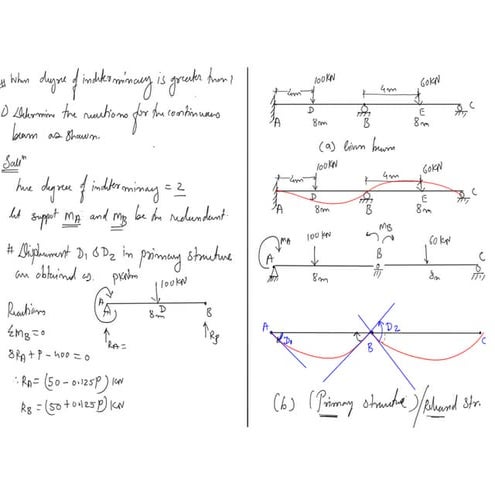 # When degree of indeterminacy is greater than 1
1) Determine the reactions for the continuous
beam as shown.
Solⁿ
here degree of indeterminacy = 2
let support MA and MB be the redundant.
# Displacement D1 & D2 in primary structure
are obtained as.
PkNm
100KN
A
D
8m
B
RA=
RB
Reactions
ΣMB=0
8RA+P-400=0
∴RA=(50-0.125P)KN
RB=(50+0.125P)KN
100KN
4m
4m
60KN
A
D
8m
B
E
8m
C
(a) Given beam
100KN
4m
4m
60KN
A
D
8m
B
E
8m
C
MA
A
100KN
8m
MB
B
60KN
8m
C
A
D1
B
D2
C
(b) (Primary structure)/Released Str.